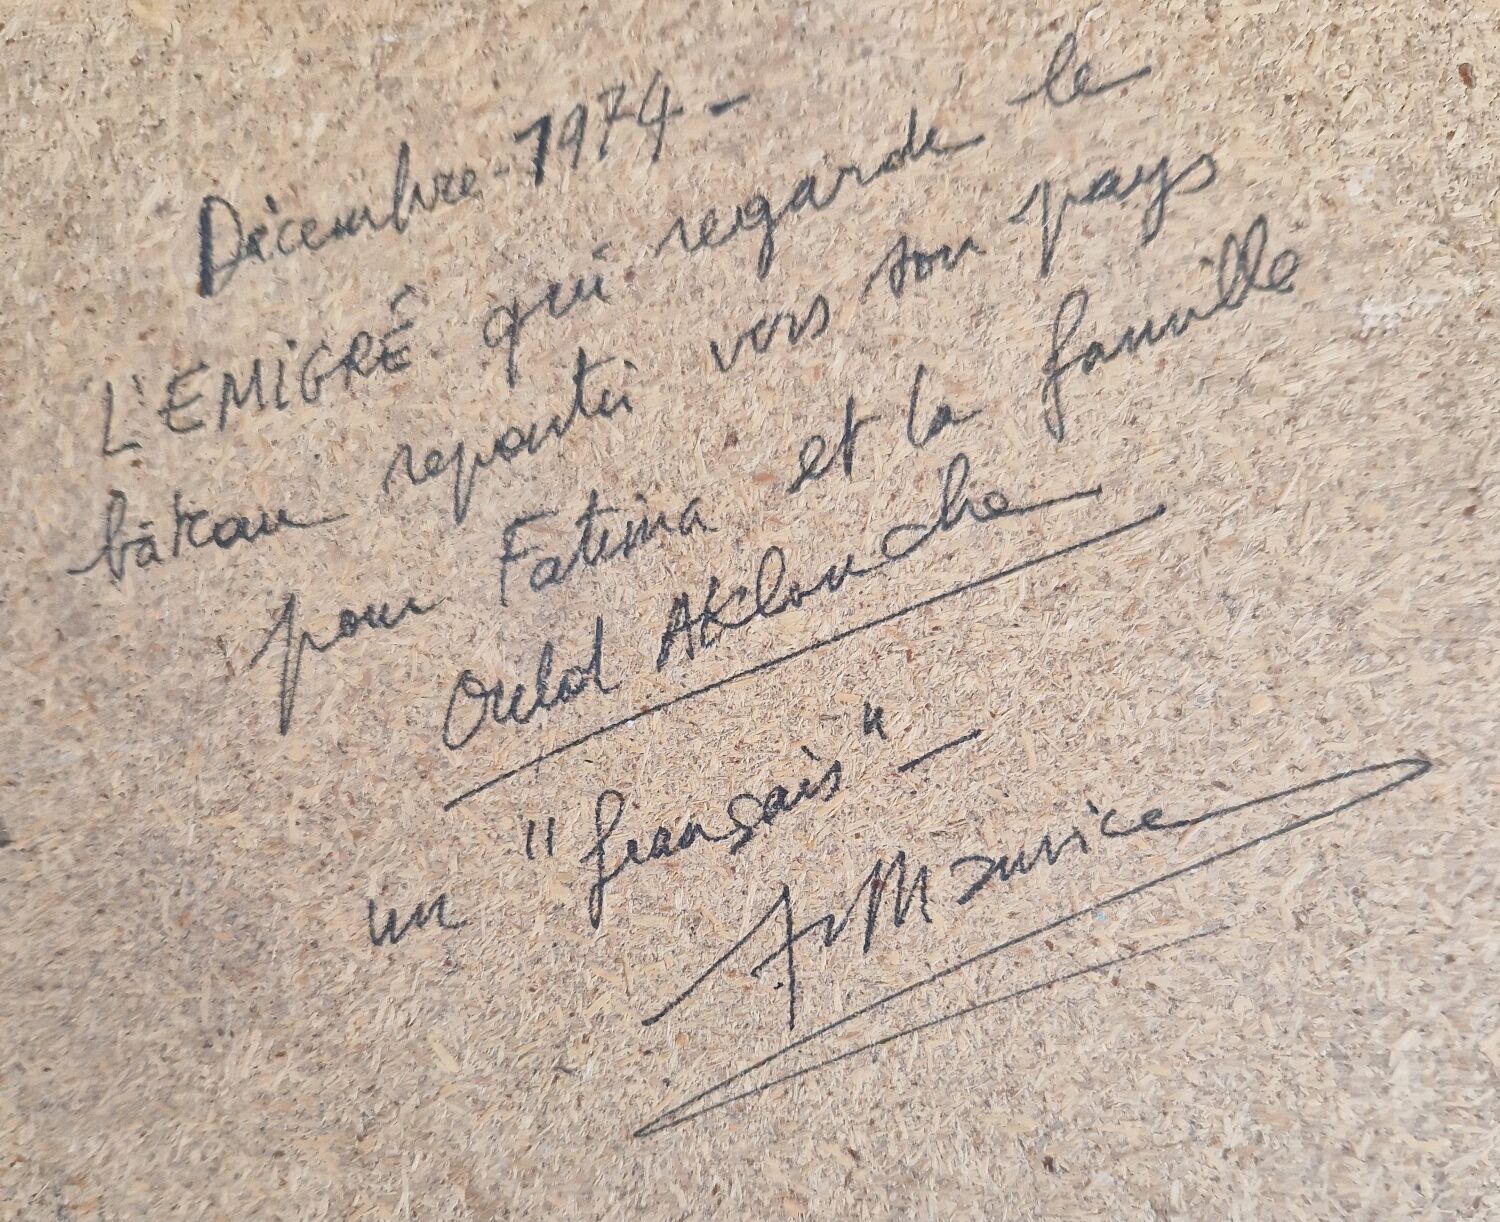 Décembre-1974-
L'EMIGRÉ qui regarde le
bâteau repartir vers son pays
pour Fatima et la famille
Ouled AKlouche
un "français"-
Maurice